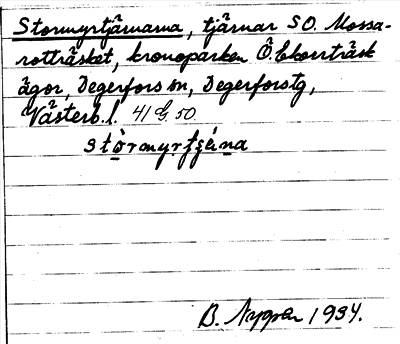 Stormyrtjärnarna, tjärnar SO. Mossa-
rotträsket, kronoparken Ö. Ekorrträsk
ägor, Degerfors sn, Degerforstg,
Västerb. l. 41 G. 50.
stòrmyrtjéna
B. Nygren 1934.